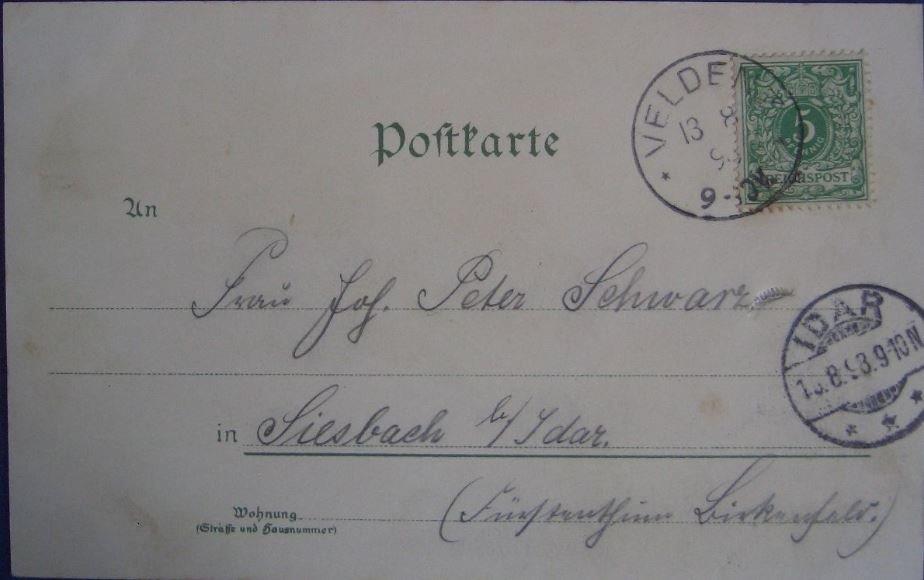 Postkarte
VELDEN
13 8
9
9-10V.
5
PFENNIG
REICHSPOST
An
Frau Joh. Peter Schwarz
IDAR
13.8.98.9-10N
in Siesbach b/Idar.
(Fürstenthum Birkenfeld.)
Wohnung
(Straße und Hausnummer)